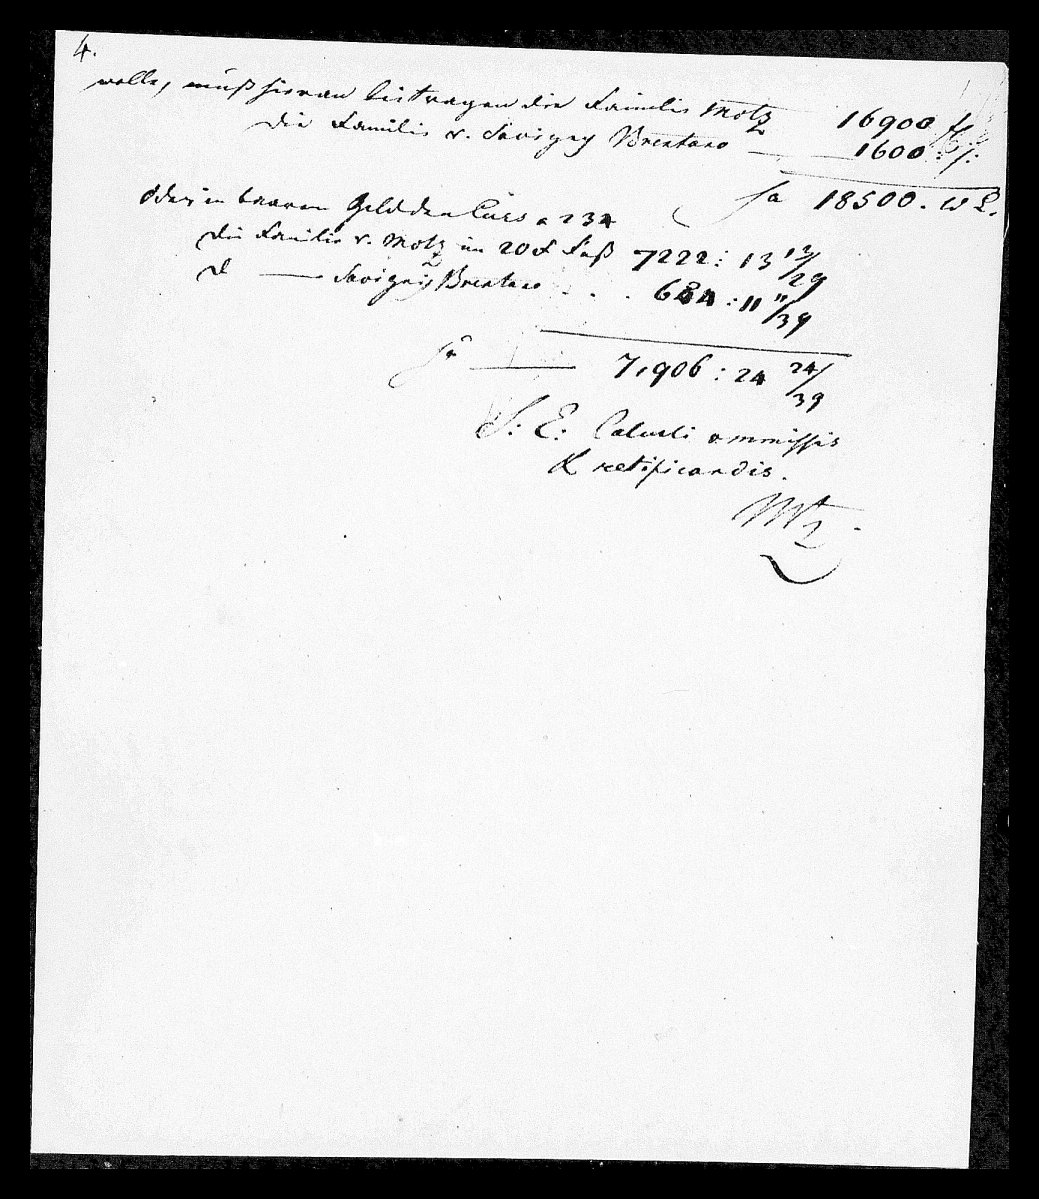 4.
wolle, muß hieran beitragen die Familie Motz 16900
die Familie v. Savigny Brentano — 1600
Sa 18500. W
Oder in baarem Geld den Curs a 234
die Familie v. Motz im 20 f Fuß 7222: 13 12/29
d — Savigny Brentano . . . 684: 11 11/39
Sa — 7,906: 24 24/39
S: E: Calculi ommissis
& retificandis.